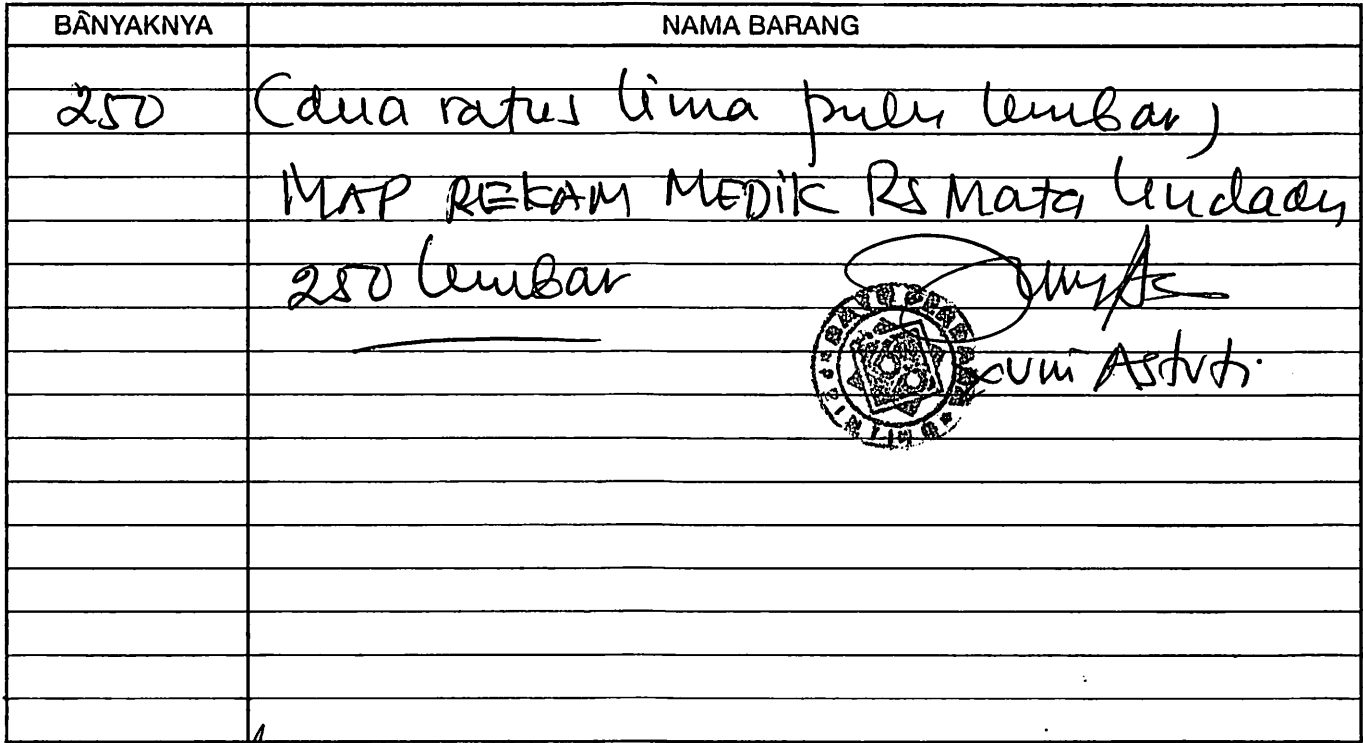 BANYAKNYA NAMA BARANG
250 (dua ratus lima puluh lembar)
MAP REKAM MEDIK RS Mata Undaan
250 lembar
Yuni Astuti